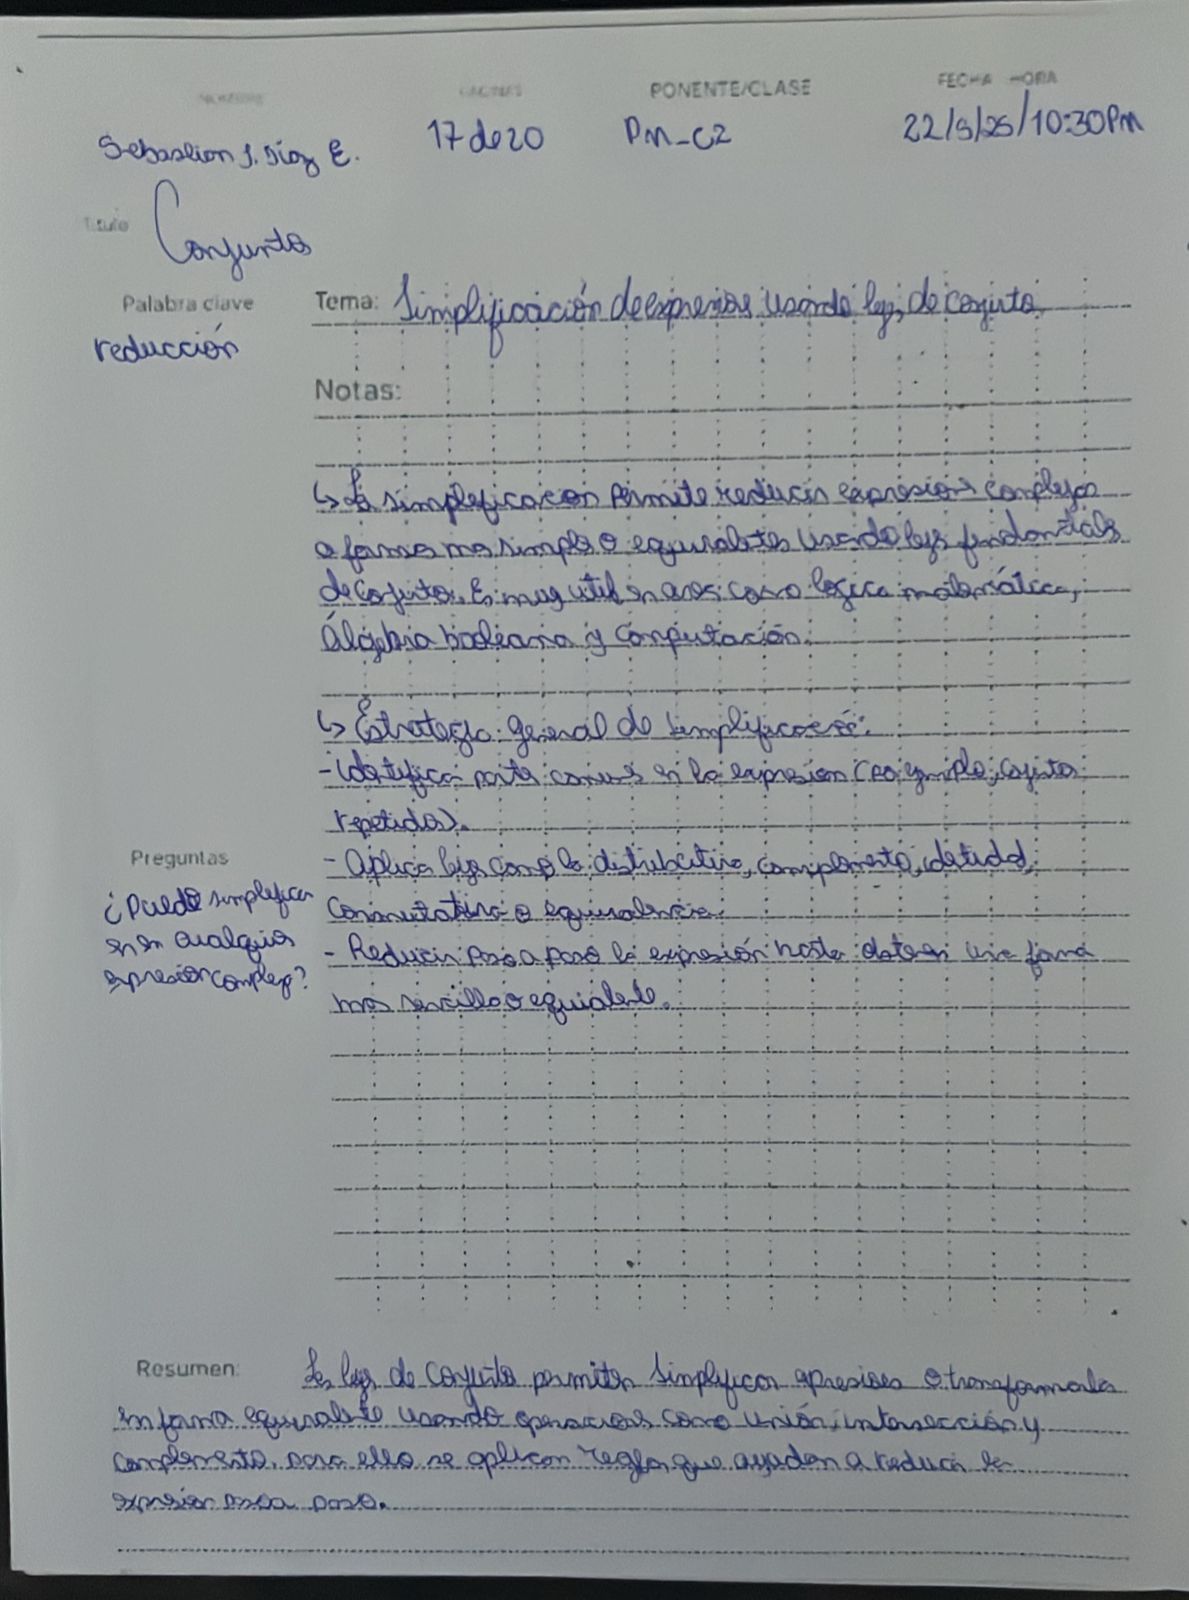 NOMBRE PONENTE/CLASE FECHA HORA
Sebastian J. Díaz E. 17 de 20 PM-C2 22/5/25/10:30PM
Titulo Conjuntos
Palabra clave Tema: Simplificación de expresiones usando leyes de conjuntos
reducción
Notas:
↳ La simplificacion permite reducir expresiones complejas
a formas mas simples o equivalentes usando leyes fundamentales
de conjuntos. Es muy util en areas como logica matemática,
Álgebra booleana y computación.
↳ Estrategia general de simplificación:
- identificar partes comunes en la expresion (por ejemplo, conjuntos
repetidos).
Preguntas
- Aplica leyes como la distributiva, complemento, identidad,
conmutativa o equivalencia.
- Reducir paso a paso la expresión hasta obtener una forma
mas sencilla o equivalente.
¿Puedo simplificar
en cualquier
expresion compleja?
Resumen: Las leyes de conjunto permiten simplificar expresiones o transformarla
en forma equivalente usando operaciones como unión, intersección y
complemento. para ello se aplican reglas que ayudan a reducir la
expresion paso a paso.